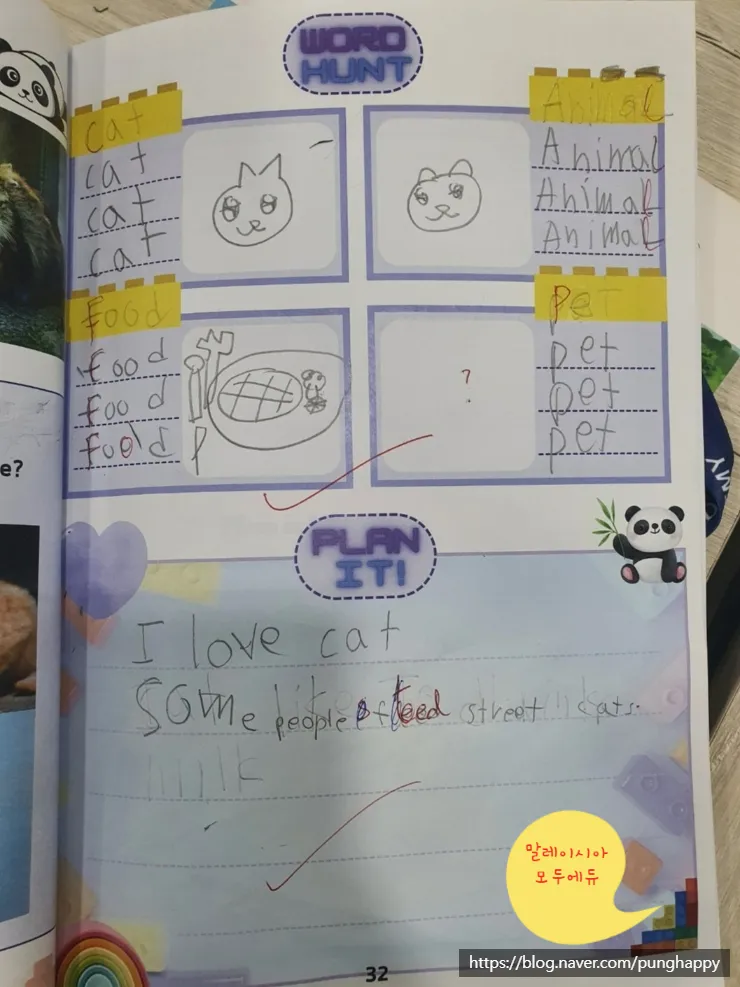 WORD
HUNT
cat
cat
cat
cat
Animal
Animal
Animal
Animal
food
food
food
food
?
pet
pet
pet
pet
e?
PLAN
IT!
I love cat
some people feed street cats.
milk
말레이시아
모두에듀
32
https://blog.naver.com/punghappy